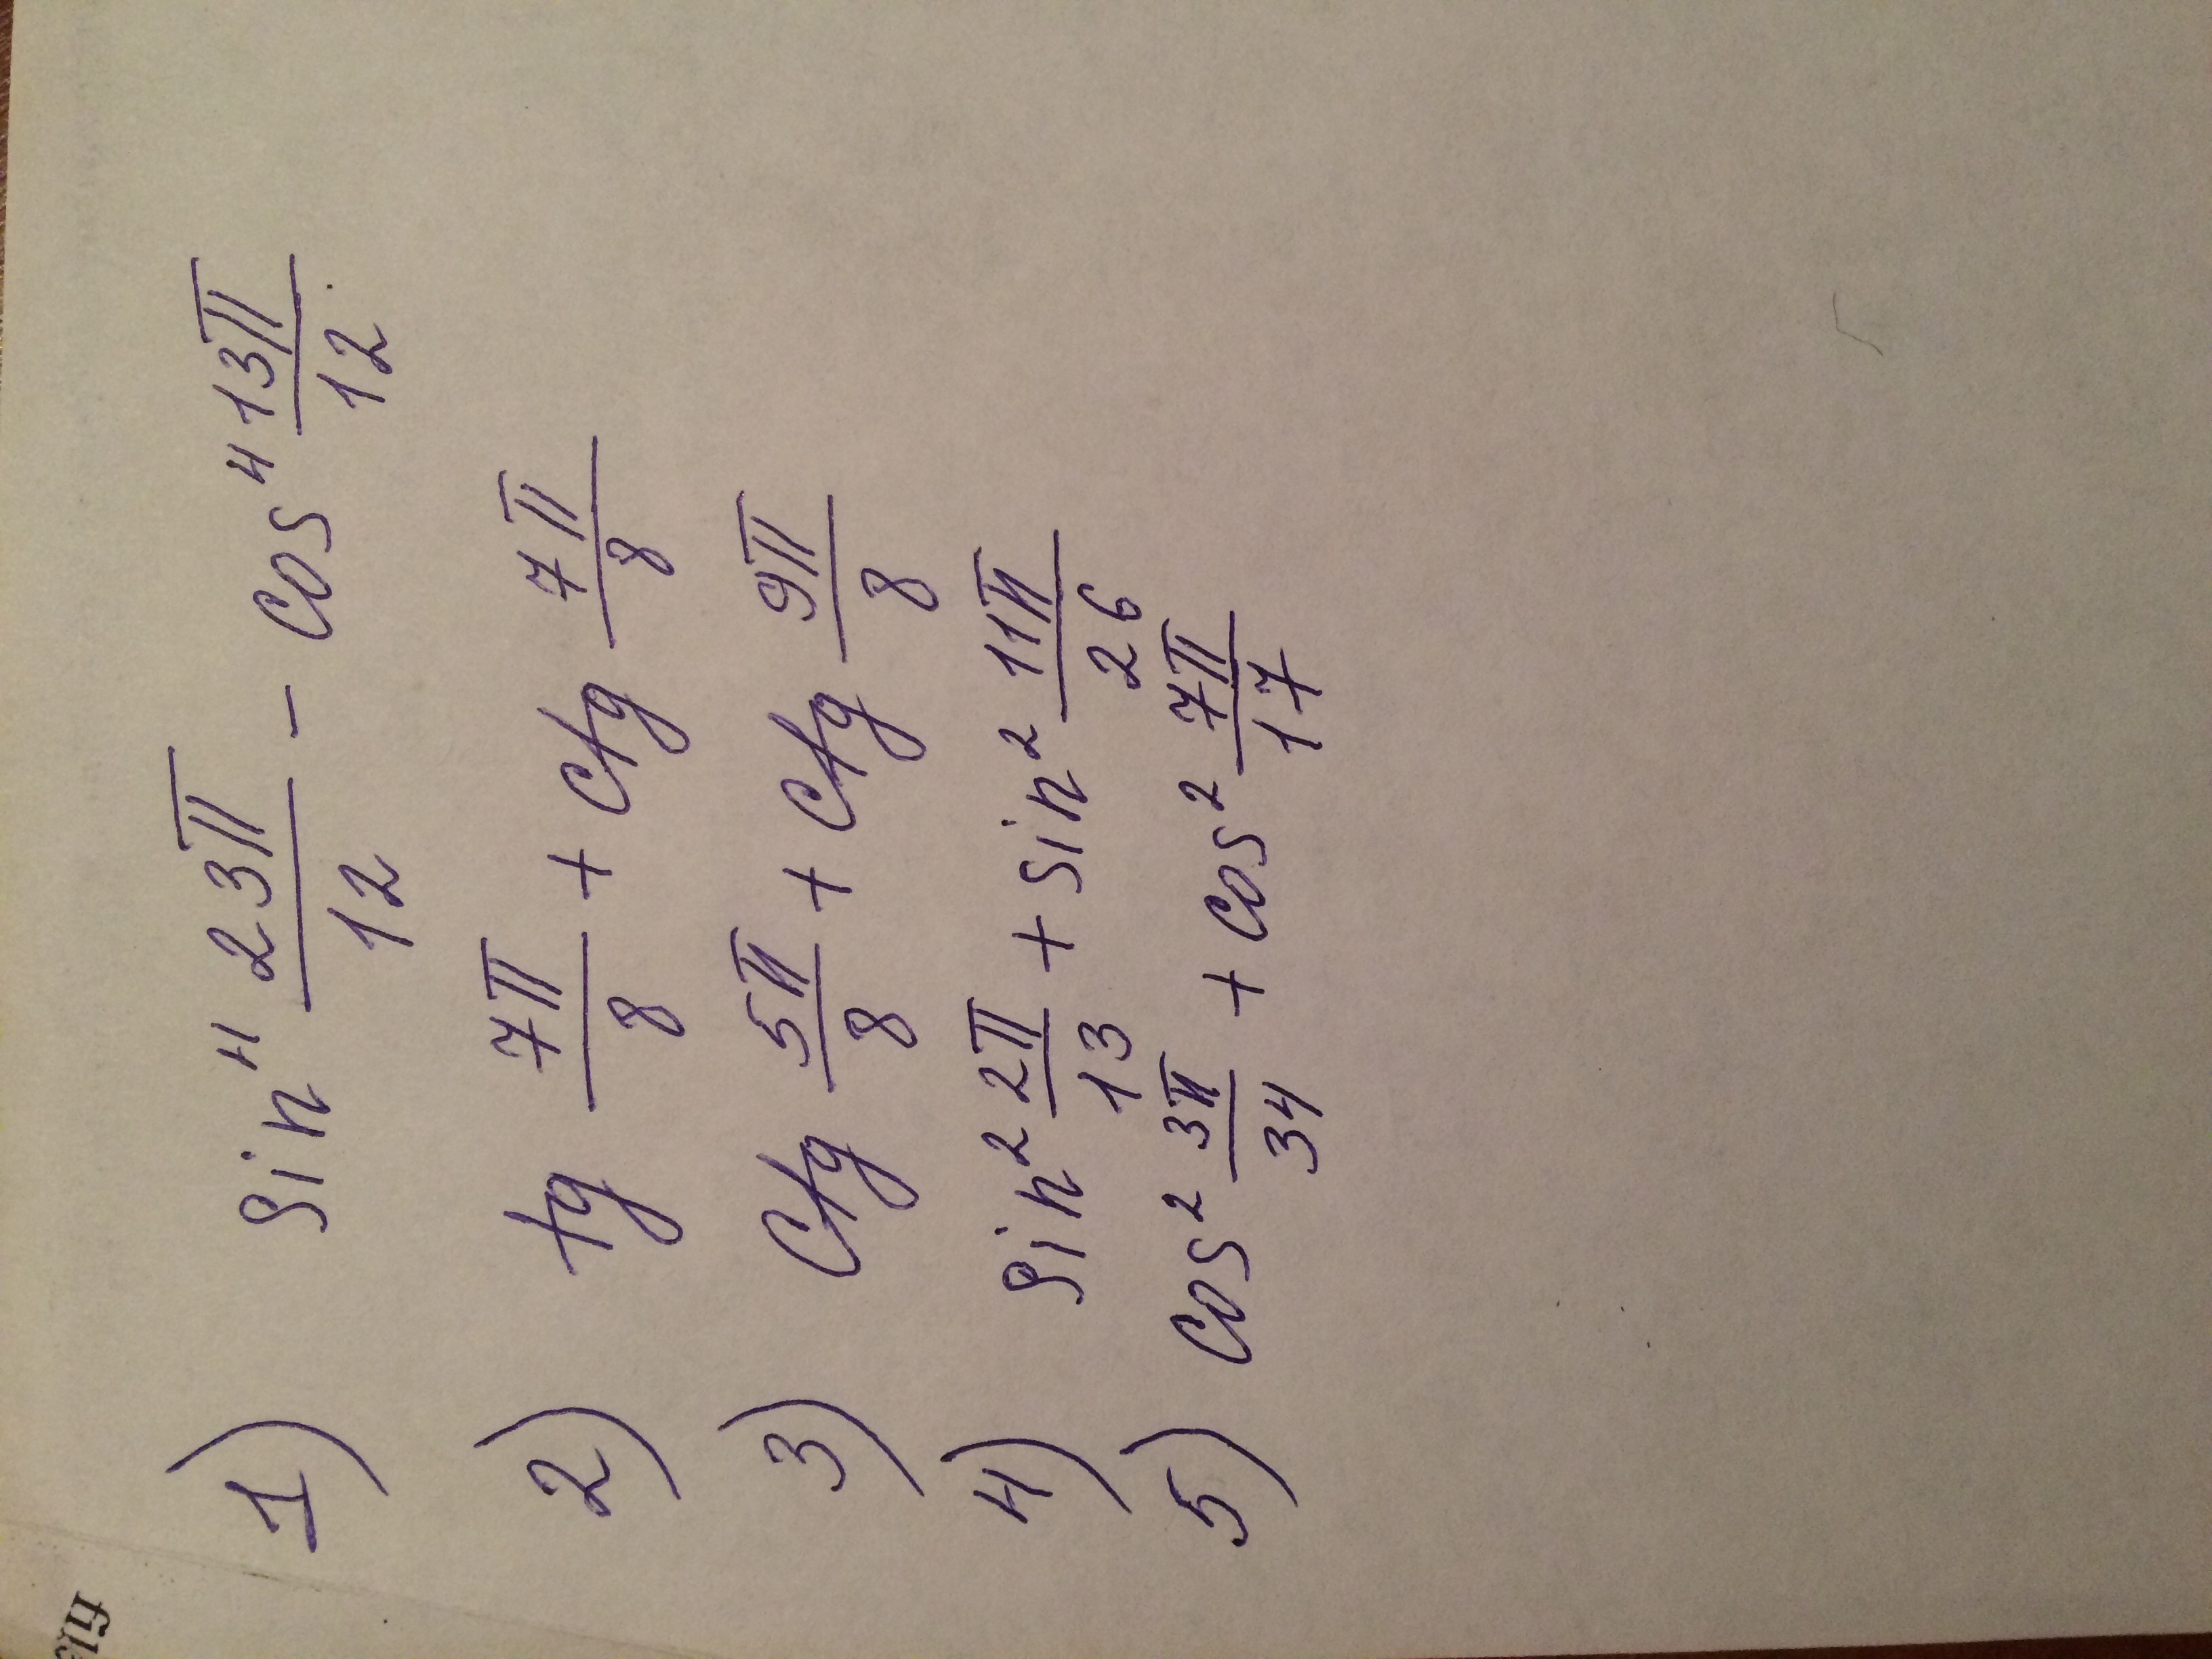 1) sin⁴ 23π/12 - cos⁴ 13π/12
2) tg 7π/8 + ctg 7π/8
3) ctg 5π/8 + ctg 9π/8
4) sin² 2π/13 + sin² 11π/26
5) cos² 3π/34 + cos² 7π/17